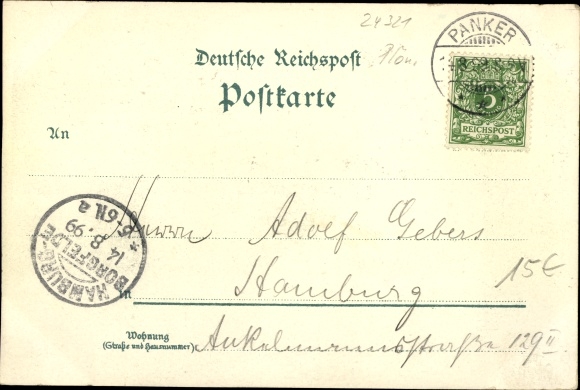 24321
Plön.
PANKER
Deutsche Reichspost
Postkarte
5
REICHSPOST
An
Herrn Adolf Gebers
HAMBURG-BORGFELDE
14 8.99
5-6N a
15€
in Hamburg
Wohnung
(Straße und Hausnummer)
Ankelmannstrasse 129 II